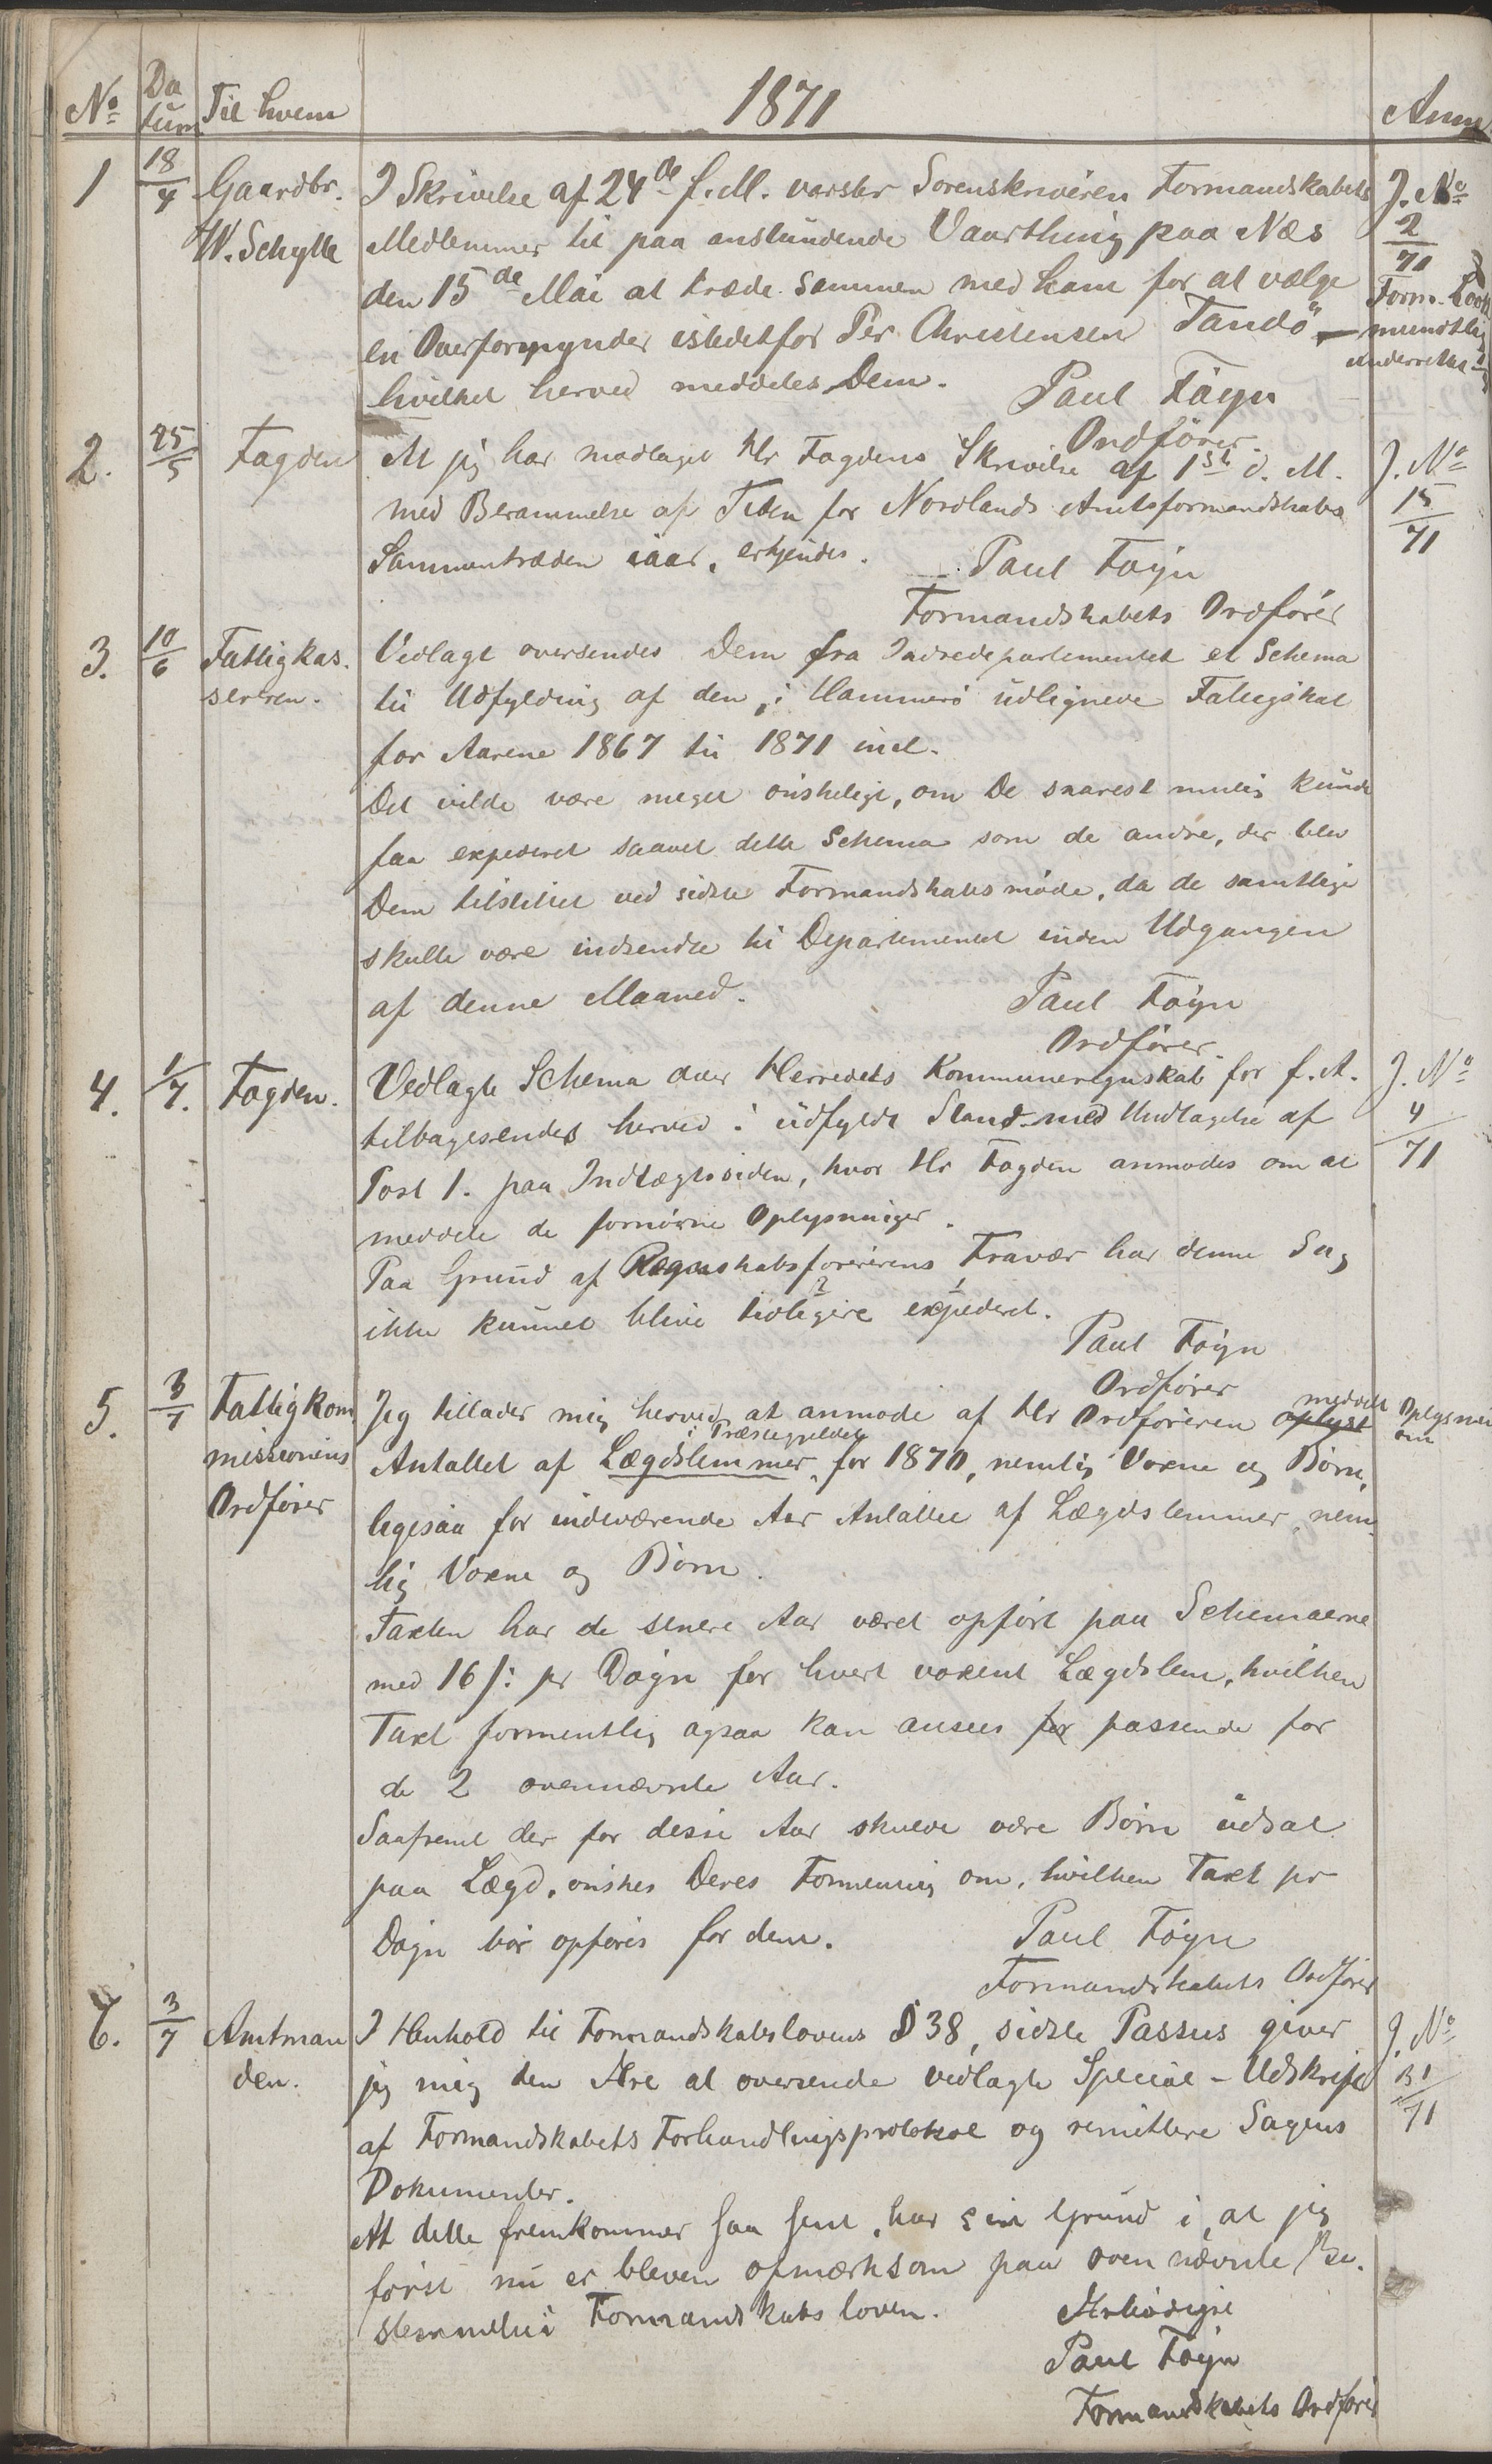 No Da Til hvem 1871 Anm
tum
1 18/4 Gaardbr. I Skrivelse af 24de f. M. varsler Sorenskriveren Formandskabets J. No
W. Schytte Medlemmer til paa anstundende Vaarthing paa Næs 2/71
den 15de Mai at træde sammen med ham for at vælge Form.
en Overformynder istedetfor Per Christensen Tandö – mundtlig
hvilket herved meddeles Dem. underrettet
Paul Föyn
Ordförer.
2. 25/5 Fogden At jeg har modtaget Hr Fogdens Skrivelse af 1ste d. M. J. No
med Berammelse af Tiden for Nordlands Amtsformandskabs 15/71
Sammentræden iaar, erkjendes.
Paul Föyn
Formandskabets Ordförer
3. 10/6 Fattigkas- Vedlagt oversendes Dem fra Indredepartementet et Schema
sereren. til Udfylding af den i Hammerö udlignede Fattigskat
for Aarene 1867 til 1871 incl.
Det vilde være meget önskeligt, om De snarest mulig kunde
faa expederet saavel dette Schema som de andre, der blev
Dem tilstillet ved sidste Formandskabsmöde, da de samtlige
skulle være indsendte til Departementet inden Udgangen
af denne Maaned.
Paul Föyn
Ordförer.
4. 1/7. Fogden. Vedlagte Schema over Herredets Kommuneregnskab for f. A. J. No
tilbagesendes herved i udfyldt Stand med Undtagelse af 4/71
Post 1. paa Indtægtssiden, hvor Hr Fogden anmodes om at
meddele de fornödne Oplysninger.
Paa Grund af Regnskabsförerens Fravær har denne Sag
ikke kunnet blive tidligere expederet.
2 1
Paul Föyn
Ordförer
5. 3/7 Fattigkom Jeg tillader mig herved at anmode af Hr Ordföreren oplyst meddelt Oplysning
missionens Antallet af Lægdslemmer i Præstegjeldet for 1870, nemlig Voxne og Börn, om
Ordförer ligesaa for indeværende Aar Antallet af Lægdslemmer, nem-
lig Voxne og Börn.
Taxten har de senere Aar været opfört paa Schemaerne
med 16 ſ: pr Dögn for hvert voxent Lægdslem, hvilken
Taxt formentlig ogsaa kan ansees for passende for
de 2 ovennævnte Aar.
Saafremt der for disse Aar skulde være Börn udsat
paa Lægd, önskes Deres Formening om, hvilken Taxt pr
Dögn bör opföres for dem.
Paul Föyn
Formandskabets Ordförer
6. 3/7 Amtman I Henhold til Formandskabslovens § 38, sidste Passus giver J. No
den. jeg mig den Ære at oversende vedlagte Special-Udskrift 31/71
af Formandskabets Forhandlingsprotokol og remittere Sagens
Dokumenter.
At dette fremkommer saa sent, har sin Grund i, at jeg
först nu er bleven opmærksom paa oven nævnte Be-
stemmelse i Formandskabsloven.
Ærbödigst
Paul Föyn
Formandskabets Ordförer